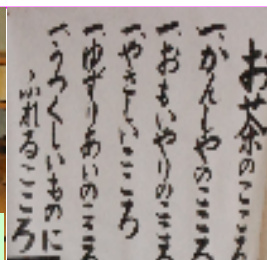 お茶のこころ
一、かんしゃのこころ
一、おもいやりのこころ
一、やさしいこころ
一、ゆずりあいのこころ
一、うつくしいものに
ふれるこころ